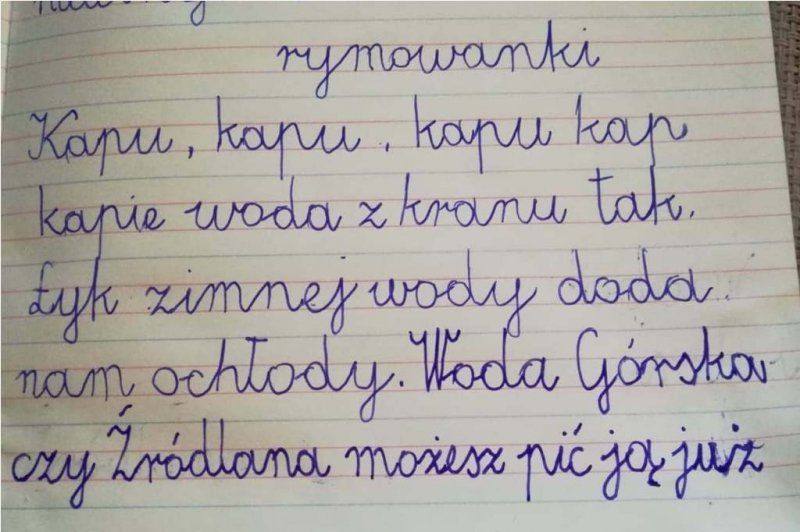 rymowanki
Kapu, kapu, kapu kap
kapie woda z kranu tak.
Łyk zimnej wody doda
nam ochłody. Woda Górska
czy Źródlana możesz pić ją już